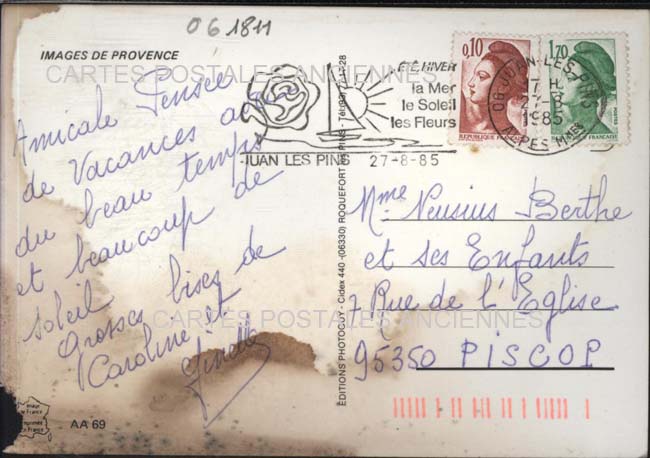 06 1811
IMAGES DE PROVENCE
CARTES POSTALES ANCIENNES
Amicale Pensée
de Vacances avec
du beau temps
et beaucoup de
soleil
Grosses bises de
Caroline et
AA 69
ÉTÉ, HIVER
la Mer
le Soleil
les Fleurs
JUAN LES PINS 27-8-85
0,10
REPUBLIQUE FRANÇAISE
1,70
06 JUAN-LES-PINS
17 H
27-8
1985
ALPES Mmes
ÉDITIONS PHOTOGUY - Cidex 440 - (06330) ROQUEFORT LES PINS - Tél. (93) 77-17-28
Mme Neusius Berthe
et ses Enfants
7 Rue de l'Eglise
95350 PISCOP
CARTES POSTALES ANCIENNES